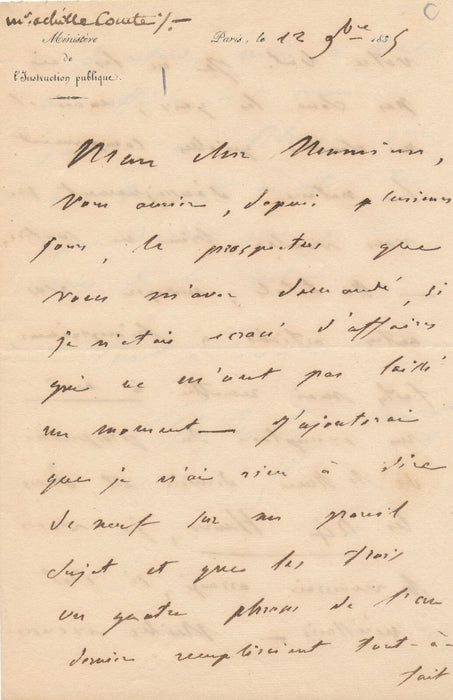 Mr. Achille Comte
C
Ministère
de
l'Instruction publique.
Paris, le 12 9bre 1835
Mon cher Monsieur,
Vous auriez, depuis plusieurs
jours, le prospectus que
vous m'avez demandé, si
je n'étais écrasé d'affaires
qui ne m'ont pas laissé
un moment — j'ajouterai
que je n'ai rien à dire
de neuf sur un pareil
sujet et que les trois
ou quatre phrases de l'an
dernier remplissent tout-à-
fait